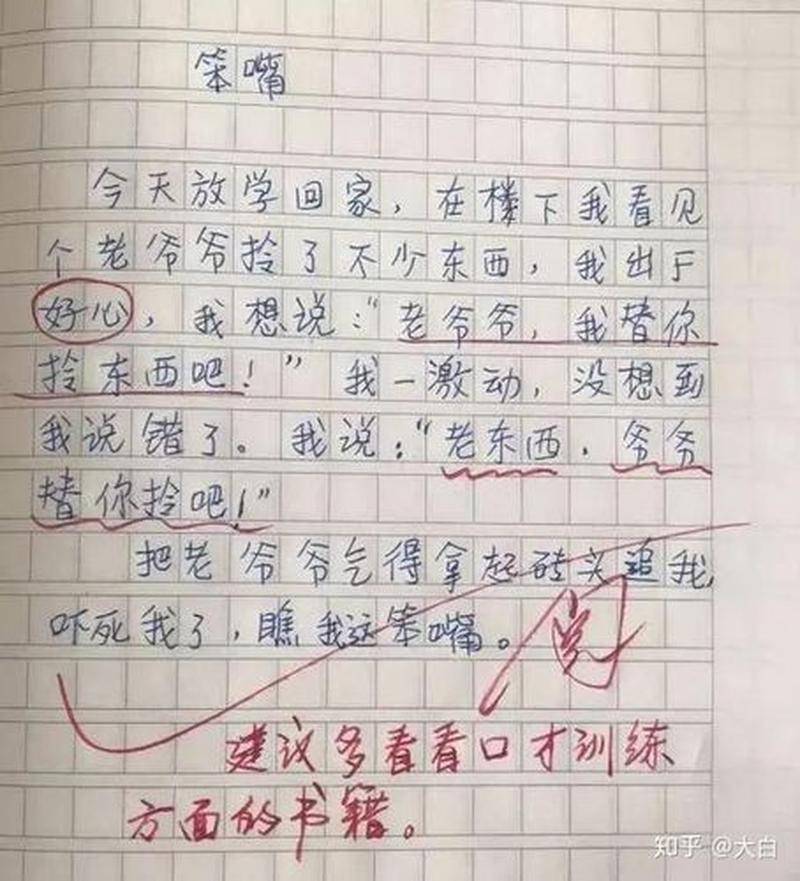 笨嘴
今天放学回家，在楼下我看见
个老爷爷拎了不少东西，我出于
好心，我想说：“老爷爷，我替你
拎东西吧！”我一激动，没想到
我说错了。我说：“老东西，爷爷
替你拎吧！”
把老爷爷气得拿起砖头追我
吓死我了，瞧我这笨嘴。
阅
建议多看看口才训练
方面的书籍。
知乎 @大白